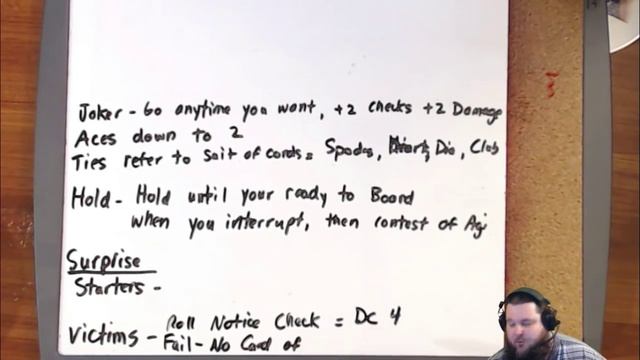 Joker - Go anytime you want, +2 checks +2 Damage
Aces down to 2
Ties refer to Suit of cards = Spades, Heart, Dia, Club
Hold - Hold until your ready to Board
when you interrupt, then contest of Agi
Surprise
Starters -
Victims - Roll Notice Check = DC 4
Fail - No Card of